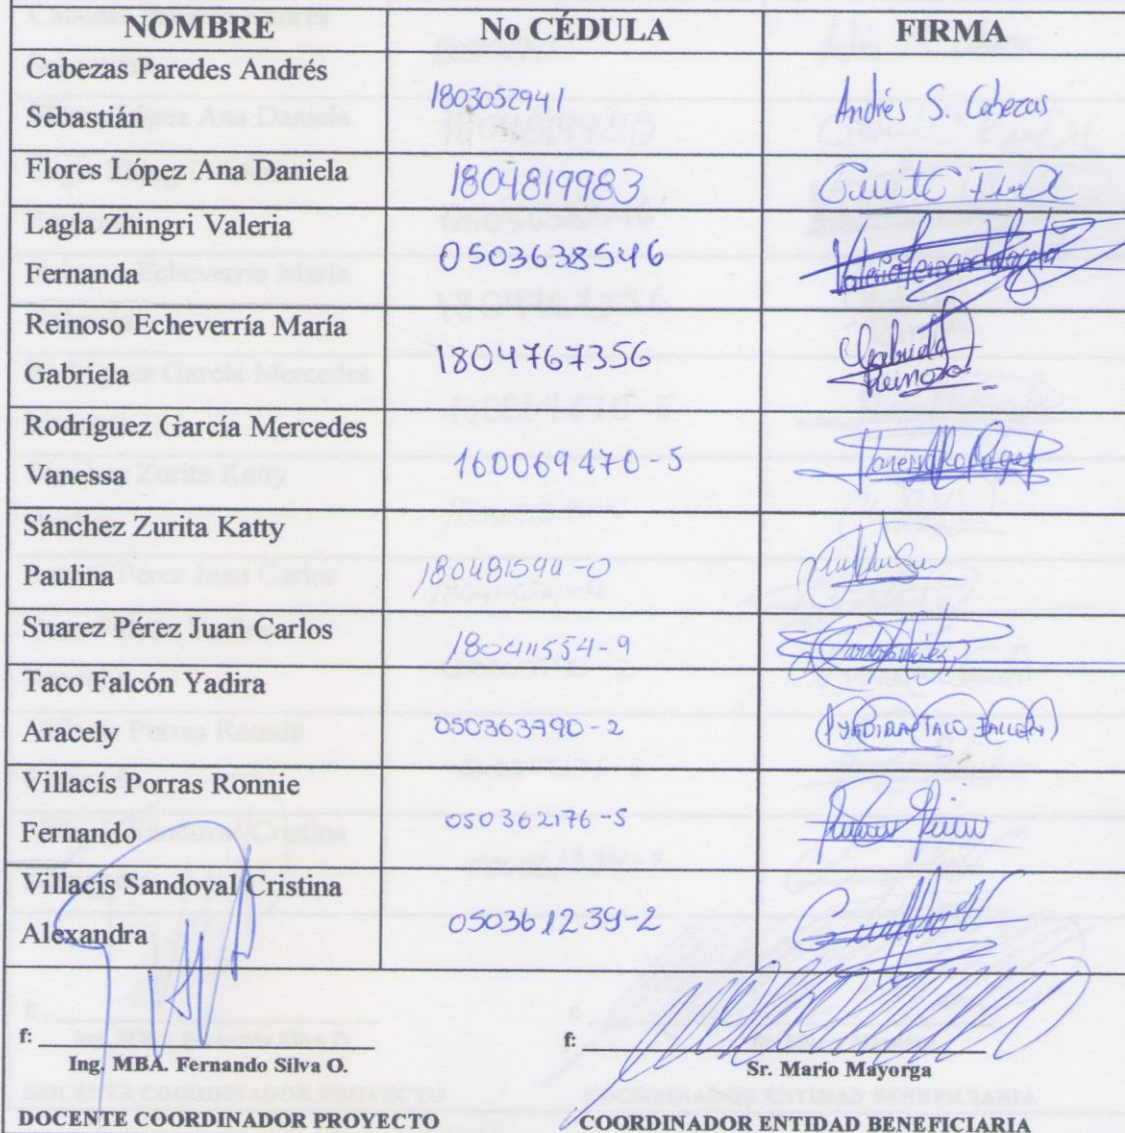 NOMBRE No CÉDULA FIRMA
Cabezas Paredes Andrés
Sebastián 1803052941 Andrés S. Cabezas
Flores López Ana Daniela 1804819983
Lagla Zhingri Valeria
Fernanda 0503638546
Reinoso Echeverría María
Gabriela 1804767356 Gabriela
Reinoso
Rodríguez García Mercedes
Vanessa 160069470-5
Sánchez Zurita Katty
Paulina 180481594-0
Suarez Pérez Juan Carlos 180411554-9
Taco Falcón Yadira
Aracely 050363790-2 YADIRA TACO FALCÓN
Villacís Porras Ronnie
Fernando 050362176-5
Villacís Sandoval Cristina
Alexandra 050361239-2
f: f:
Ing. MBA. Fernando Silva O. Sr. Mario Mayorga
DOCENTE COORDINADOR PROYECTO COORDINADOR ENTIDAD BENEFICIARIA